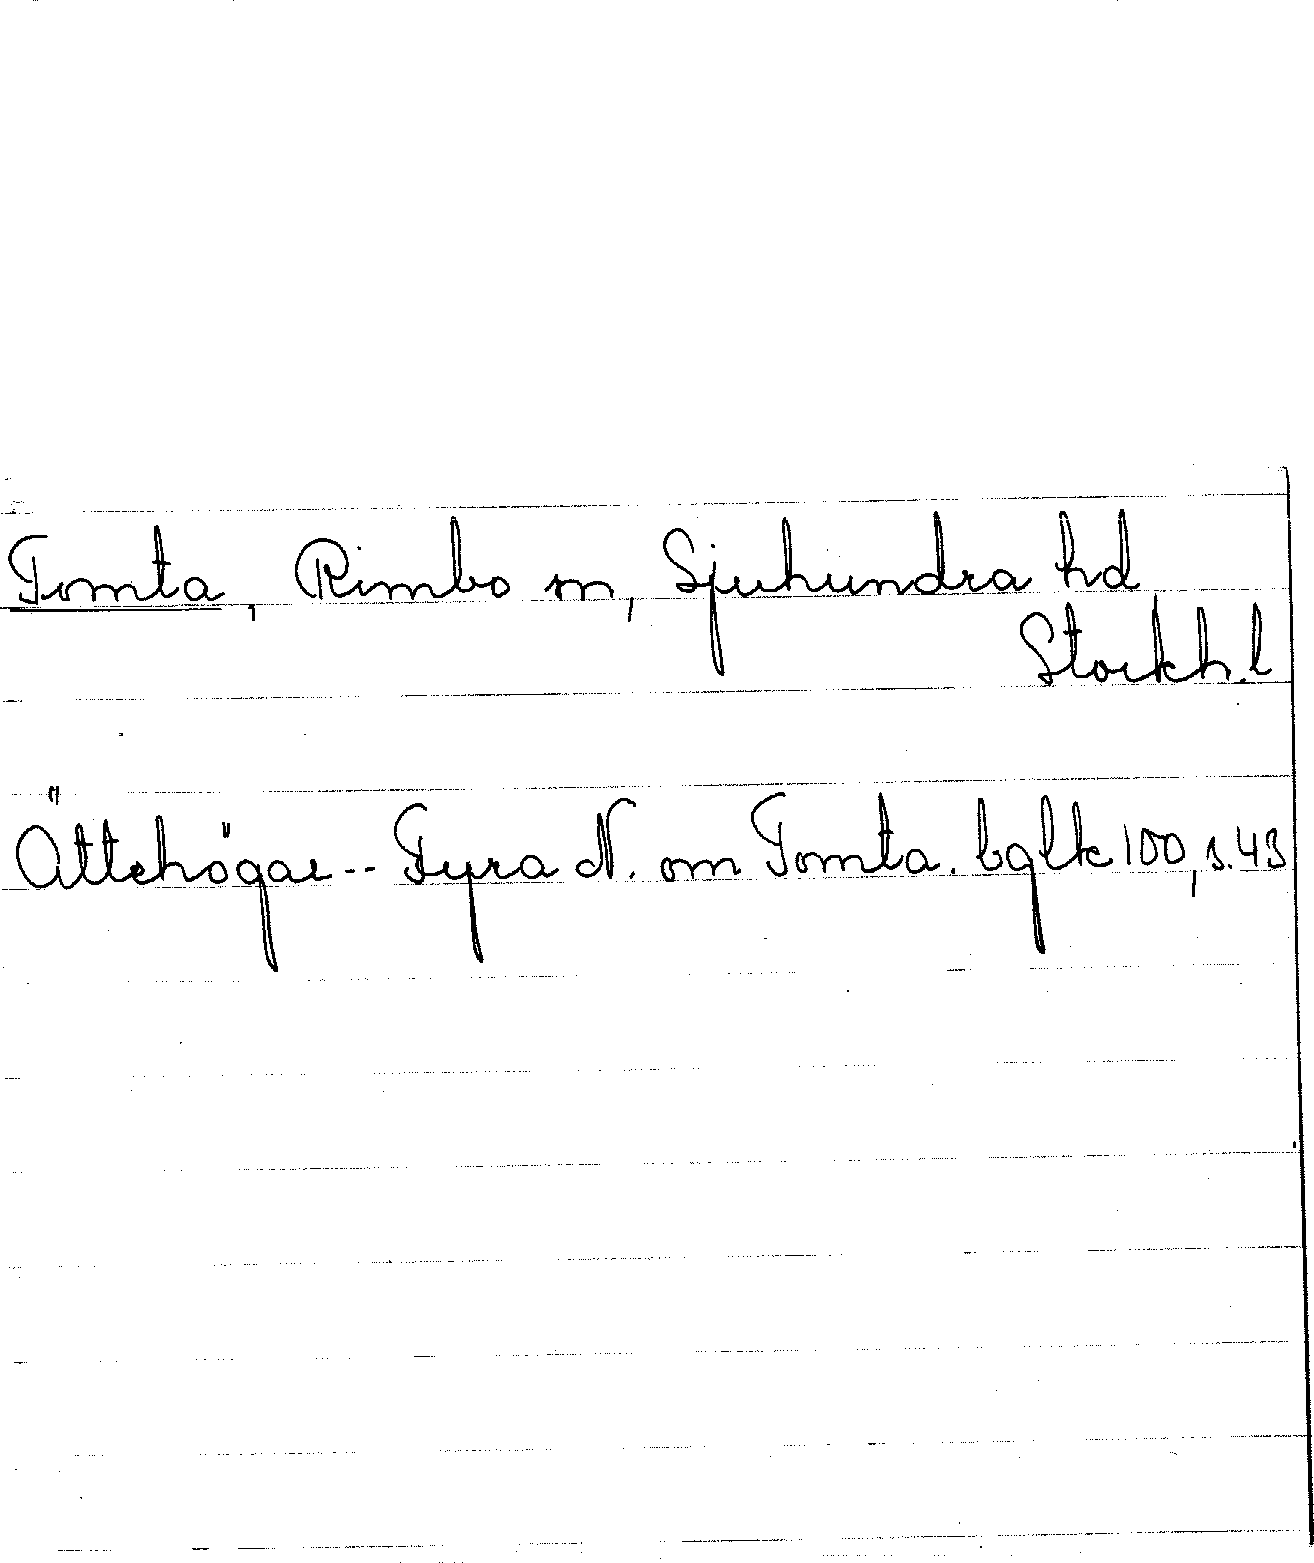 Tomta, Rimbo sn, Sjuhundra hd
Stockh.l
Ättehögar -- Fyra N. om Tomta. bglk 100, s. 43